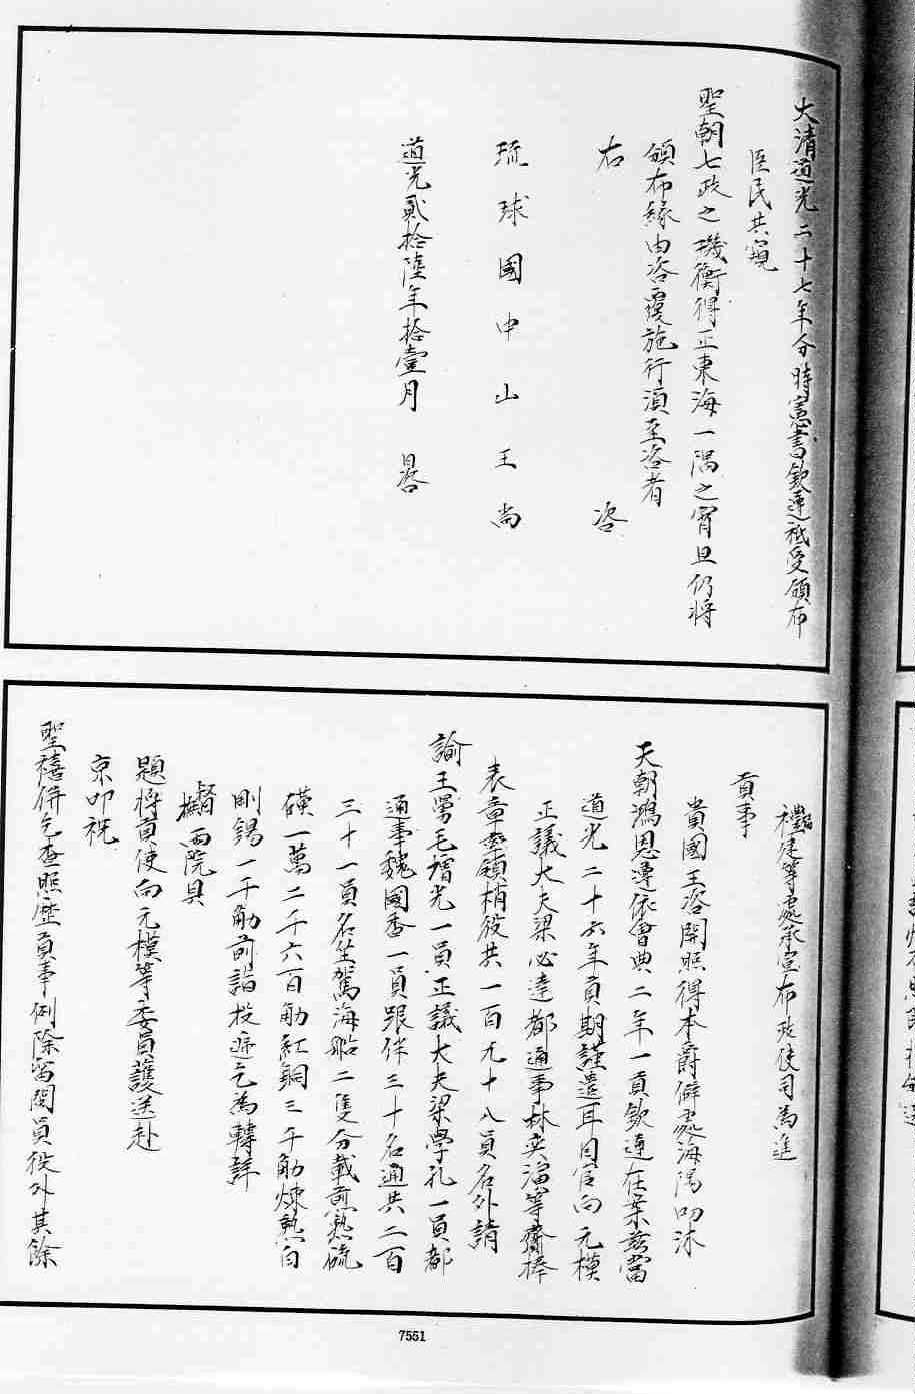 大清道光二十七年分時憲書欽遵祗受頒布
臣民共窺
聖朝七政之璣衡得正東海一隅之宵旦仍將
頒布緣由咨覆施行須至咨者
右咨
琉球國中山王尚
道光貳拾陸年拾壹月咨
禮徒等處承宣布政使司為進
貢事
貴國王咨開照得本爵僻處海隅叨沐
天朝鴻恩遵依會典二年一貢欽遵在案茲當
道光二十六年貢期謹遣耳目官向元模
正議大夫梁必達都通事林奕溜等齎捧
表章率領梢役共一百九十八員名外請
諭王舅毛增光一員正議大夫梁學孔一員都
通事魏國香一員跟伴三十名通共二百
三十一員名坐駕海船二隻分載煎熟硫
磺一萬二千六百觔紅銅三千觔煉熟白
剛錫一千觔前詣投遞乞為轉詳
督撫兩院具
題將貢使向元模等委員護送赴
京叩祝
聖禧併乞查照歷貢事例除留閩員役外其餘
7551